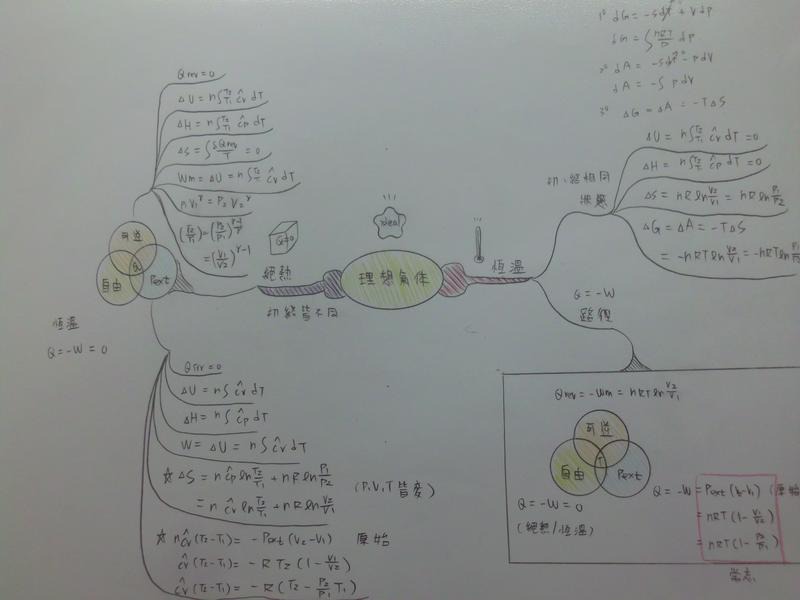 1° dG = -SdT + Vdp
dG = ∫ nRT/P dp
2° dA = -SdT - pdV
dA = -∫ pdV
3° ΔG = ΔA = -TΔS
Qrev = 0
ΔU = n∫T2 T1 ĉv dT
ΔH = n∫T2 T1 ĉp dT
ΔS = ∫ δQrev/T = 0
Wm = ΔU = n∫T2 T1 ĉv dT
P1V1^r = P2V2^r
(T2/T1) = (P2/P1)^(r-1/r)
= (V1/V2)^(r-1)
可逆
自由
Pext
Q
絕熱
Q=0
初終皆不同
ideal
理想氣体
恆溫
初、終相同
狀態
ΔU = n∫T2 T1 ĉv dT = 0
ΔH = n∫T2 T1 ĉp dT = 0
ΔS = nR ln V2/V1 = nR ln P1/P2
ΔG = ΔA = -TΔS
= -nRT ln V2/V1 = -nRT ln P1/
Q = -W
路徑
恆溫
Q = -W = 0
ΔU = n∫ ĉv dT
ΔH = n∫ ĉp dT
W = ΔU = n∫ ĉv dT
☆ ΔS = n ĉp ln T2/T1 + nR ln P1/P2
= n ĉv ln T2/T1 + nR ln V2/V1
(P,V,T 皆变)
☆ nĉv (T2-T1) = -Pext (V2-V1) 原始
ĉv (T2-T1) = -R T2 (1 - V1/V2)
ĉv (T2-T1) = -R (T2 - P2/P1 T1)
Qrev = -Wm = nRT ln V2/V1
可逆
自由
Pext
T
Q = -W = 0
(絕熱/恆溫)
Q = -W = Pext (V2-V1) (原始
= nRT (1 - V1/V2)
= nRT (1 - P2/P1)
常态